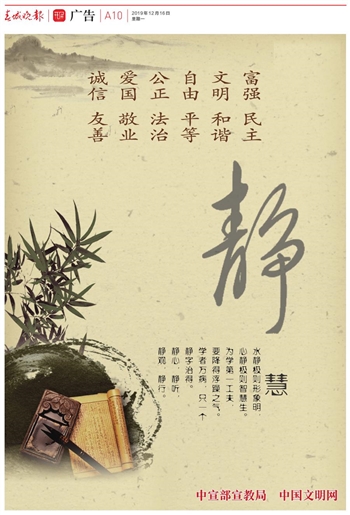 春城晚报 广告 A10 2019年12月16日
星期一
富强 民主
文明 和谐
自由 平等
公正 法治
爱国 敬业
诚信 友善
静
慧
水静极则形象明
心静极则智慧生。
为学第一工夫,
要降得浮躁之气。
学者万病,只一个
静字治得。
静心、静听、
静观、静行。
中宣部宣教局 中国文明网